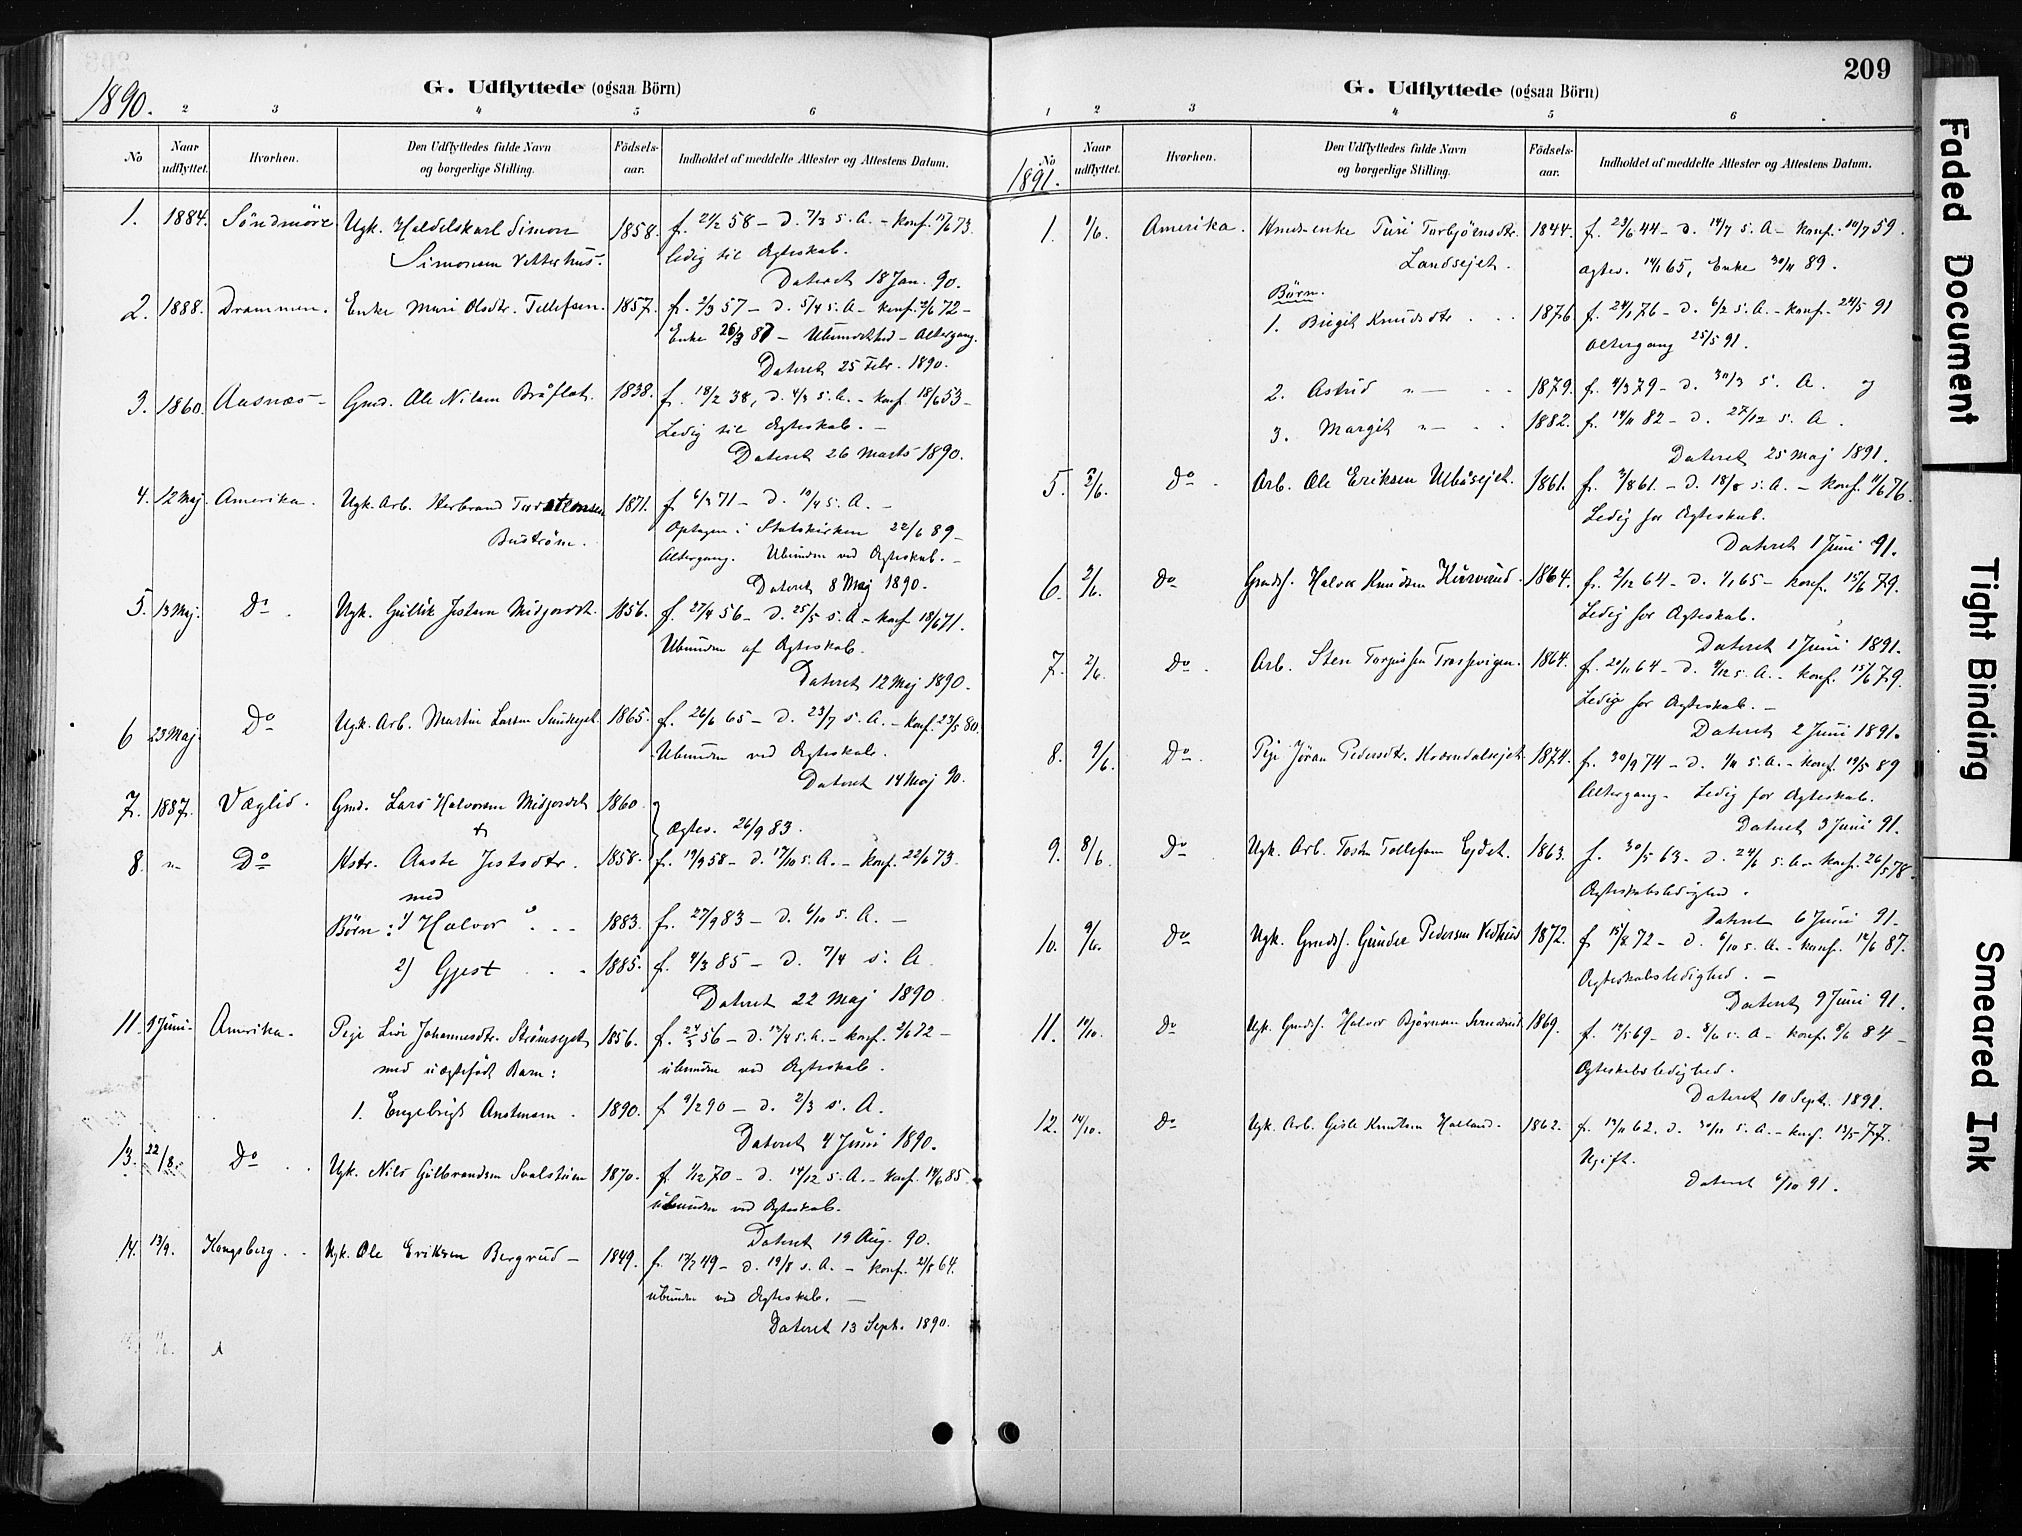 1890.
G. Udflyttede (ogsaa Börn)
2 3 4 5 6
No
Naar udflyttet.
Hvorhen.
Den Udflyttedes fulde Navn og borgerlige Stilling.
Födsels-aar.
Indholdet af meddelte Attester og Attestens Datum.
1. 1884. Söndmöre Ugk. Simon 1858. f. 21/2 58 – d. 7/3 s. A. – konf. 73.
Simonsen Vetterhus. ledig til Ægteskab.
Dateret 18 Jan. 90.
2. 1888. Drammen. Enke Mari Olsdtr. Tollefsen. 1857. f. 2/3 57 – d. 5/4 s. A – konf. 2/6 72 –
Enke 26/3 87 – – Altergang.
Dateret 25 Febr. 1890.
3. 1860. Aasnæs – Gmd. Ole Nilsen Bråflat. 1838. f. 18/2 38, d. 4/3 s. A. – konf. 18/6 53 –
Ledig til Ægteskab. –
Dateret 26 Marts 1890.
4. 12 Maj. Amerika. Ugk. Arb. Herbrand 1871. f. 71 – d. 10/4 s. A. –
Optagen i Statskirken 22/6 89 –
Altergang. Ubunden ved Ægteskab. –
Dateret 8 Maj 1890.
5. 13 Maj. Do. Ugk. Gullik Jestsen 1856. f. 27/4 56 – d. 25/5 s. A – konf 18/6 71.
Ubunden af Ægteskab.
Dateret 12 Maj 1890.
6 23 Maj. Do Ugk. Arb. Martin Larsen 1865. f. 26/6 65 – d. 23/7 s. A. – konf. 23/5 80.
Ubunden ved Ægteskab.
Dateret 14 Maj 90.
7. 1887. Væglid. Gmd. Lars Halvorsen 1860
Ægtev. 26/9 83.
8. " Do Hstr. Aaste Jestsdtr. 1858. f. 19/9 58 – d. 17/10 s. A. – konf. 22/6 73.
med
Börn: 1) Halvor 1883. f. 27/9 83 – d. 6/10 s. A. –
2) Gjest 1885. f. 4/3 85 – d. 7/4 s. A.
Dateret 22 Maj 1890
11. 9 Juni. Amerika. Pige Johannesdtr. Strömsejet 1856. f. 24/3 56 – d. 13/4 s. A. – konf. 2/6 72 –
med uægtefödt Barn: ubunden ved Ægteskab.
1. Engebrigt 1890. f 9/2 90 – d. 2/3 s. A.
Dateret 4 Juni 1890.
13. 22/8. Do Ugk. Nils Gulbrandsen 1870. f. 1/12 70 – d. 14/12 s. A. – konf. 14/6 85.
ubunden ved Ægteskab.
Dateret 19 Aug. 90.
14. 13/9. Kongsberg. Ugk. Ole Eriksen Bergrud – 1849. f. 49 – d. 19/8 s. A. – konf. 21/8 64.
ubunden ved Ægteskab. –
Dateret 13 Sept. 1890.
209
G. Udflyttede (ogsaa Börn)
1 2 3 4 5 6
No
1891.
Naar udflyttet.
Hvorhen.
Den Udflyttedes fulde Navn og borgerlige Stilling.
Födsels-aar.
Indholdet af meddelte Attester og Attestens Datum.
1. 1/6. Amerika. enke Turi Torbjörnsdtr. 1844. f. 23/6 44 – d. 14/7 s. A – konf. 10/7 59.
Landsejet. ægtev. 65, Enke 30/11 89.
Börn.
1. Birgit Knudsdtr 1876 f. 24/1 76 – d. 6/2 s. A – konf. 24/5 91
Altergang 25/5 91.
2. Astrid " – 1879. f. 4/3 79 – d. 30/3 s. A. og
3. Margit " – 1882. f. 14/11 82 – d. 27/12 s. A.
Dateret 25 Maj 1891.
5. 2/6. Do. Arb. Ole Eriksen 1861. f. 3/8 61. – d. 18/8 s. A – konf. 11/6 76.
Ledig for Ægteskab.
Dateret 1 Juni 91.
6. 2/6. Do Halvor Knudsen 1864. f. 2/12 64 – d. 1/1 65 – konf. 15/6 79.
Ledig for Ægteskab.
Dateret 1 Juni 1891.
7. 2/6. Do. Arb. Sten 1864. f. 20/11 64 – d. 4/12 s. A. – konf. 15/6 79.
Ledig for Ægteskab. –
Dateret 2 Juni 1891.
8. 9/6. Do. Pige Jöran Pedersdtr. 1874. f. 30/9 74 – d. 1/11 s. A. – konf. 19/5 89
Altergang – Ledig for Ægteskab.
Dateret 3 Juni 91.
9. 8/6. Do Ugk. Arb. Tosten Tollefsen Ejdet. 1863. f. 30/5 63 – d. 24/6 s. A – konf. 26/5 78.
Ægteskabsledighed.
Dateret 6 Juni 91.
10. 9/6. Do Ugk. Gmds. Gunder Pedersen 1872. f 15/8 72 – d. 6/10 s. A. – konf. 12/6 87.
Ægteskabsledighed. –
Dateret 9 Juni 91.
11. 10/10. Do Ugk. Gmds. Halvor Björnsen 1869. f. 69 – d. 8/6 s. A – konf. 8/6 84 –
Ægteskabsledighed.
Dateret 10 Sept. 1891.
12. 14/10. Do Ugk. Arb. Gisle Knutsen Haland. 1862. f. 13/11 62. d. 30/11 s. A. – konf. 13/5 77.
Ugift.
Dateret 6/10 91.
Faded Document
Tight Binding
Smeared Ink